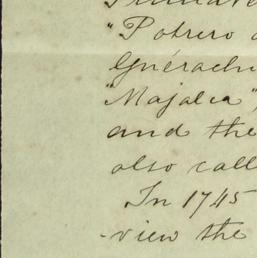 "Potrero
Guérach
"Majalca",
and the
also call
In 1745
-view the